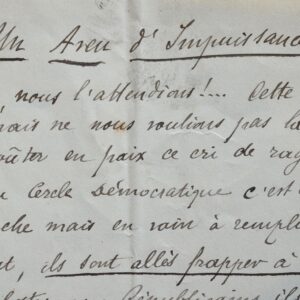 Un Aveu d'Impuissance
nous l'attendions!... Cette
mais ne nous voulions pas la
goûter en paix ce cri de rag
u Cercle Démocratique c'est
che mais en vain à rempli
t, ils sont allés frapper à
Républicains il